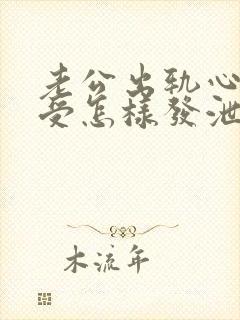 老公出轨心
受怎樣發泄
木流年